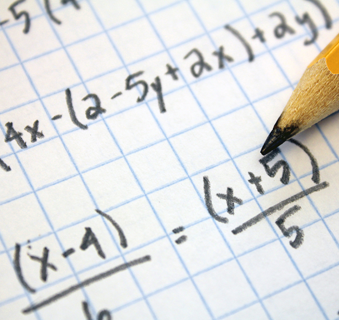 -5(
4x-(2-5y+2x)+2y)
(x-4) = (x+5)
5